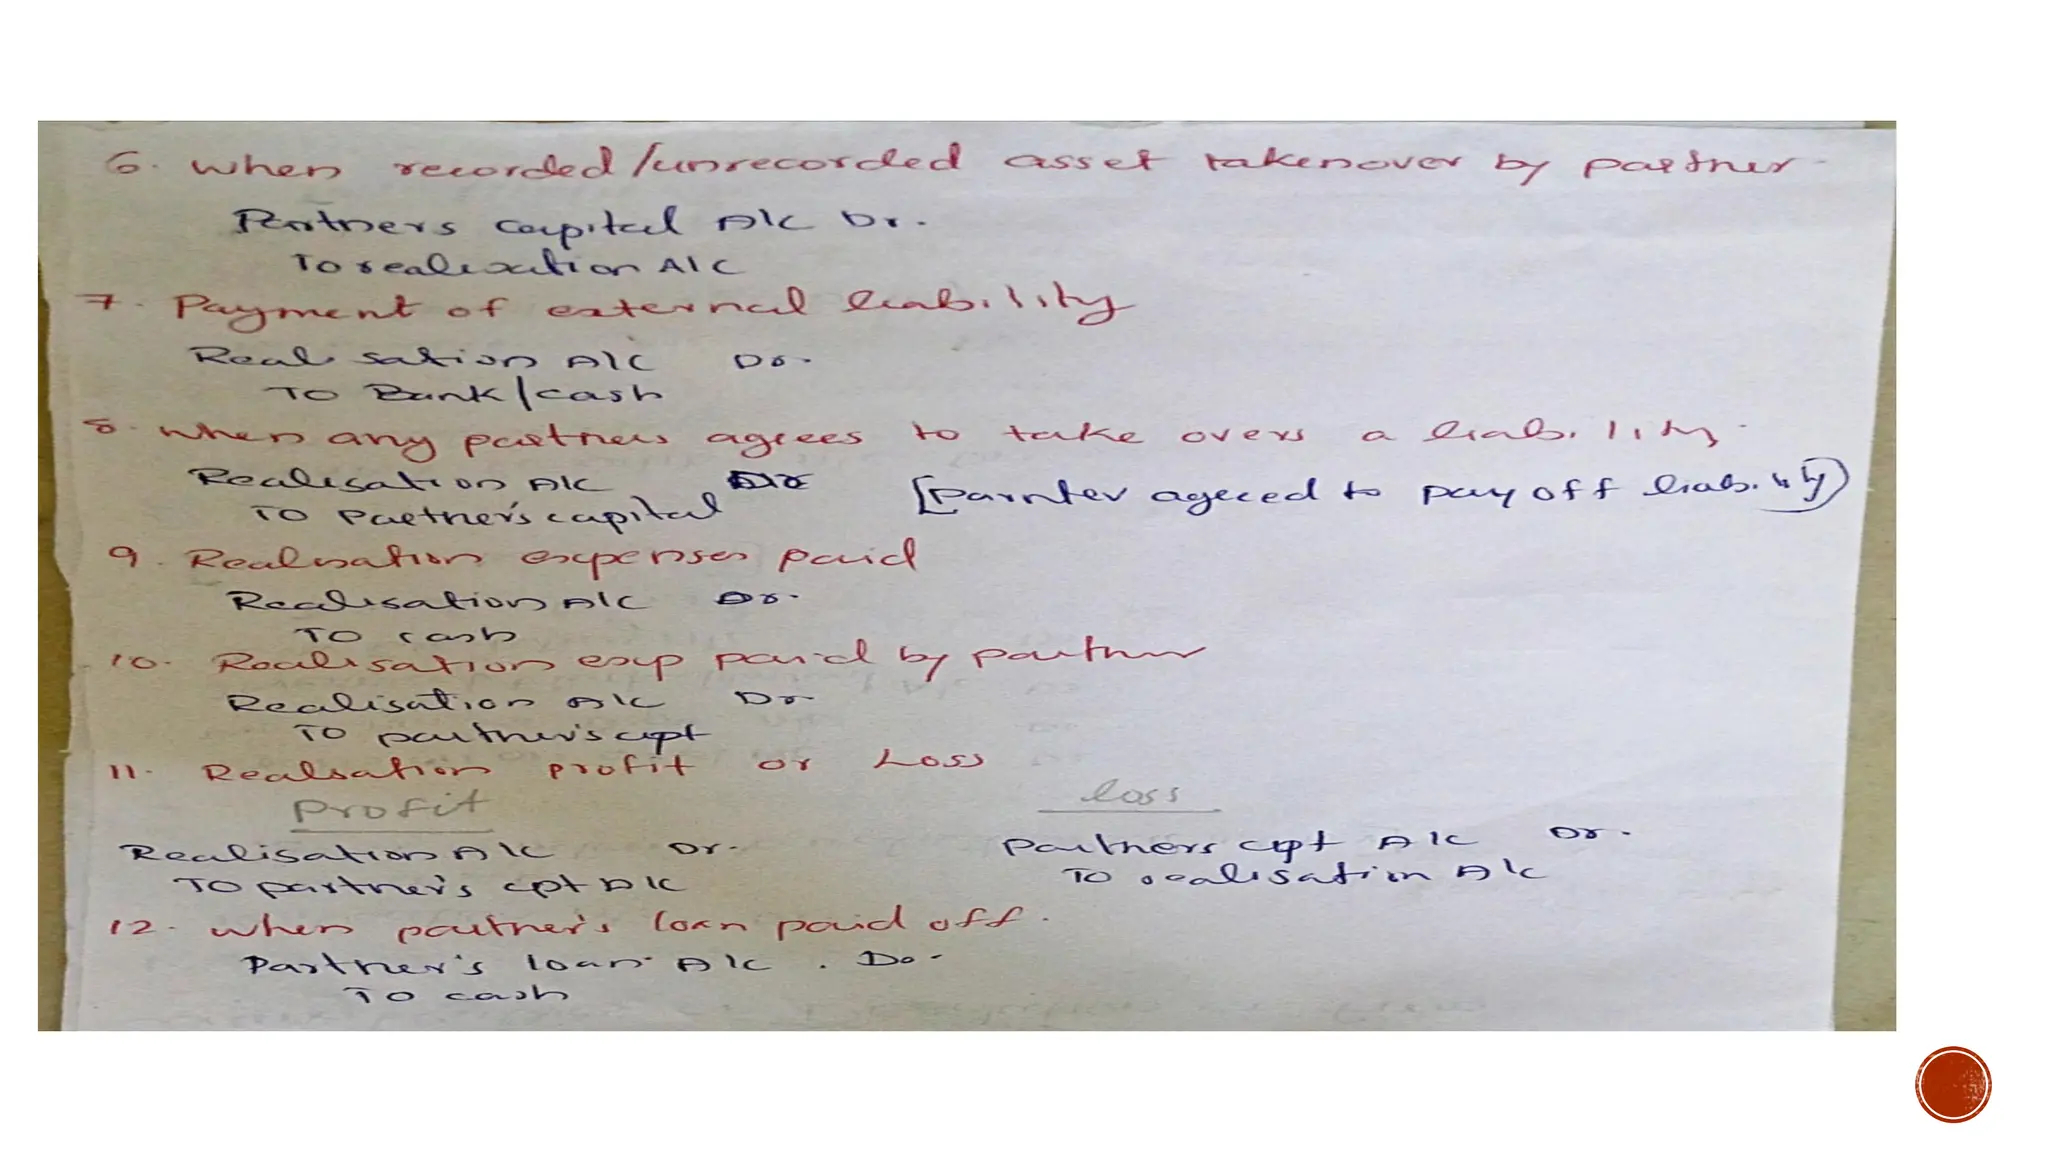 6. When recorded/unrecorded asset takenover by partner
Partners capital A/c Dr.
To realisation A/c
7. Payment of external liability
Realisation A/c Dr.
To Bank/cash
8. when any partners agrees to take overs a liability.
Realisation A/c Dr [parnter agreeed to pay off liability)
To Partner's capital
9. Realisation expenses paid
Realisation A/c Dr.
To cash
10. Realisation exp paid by partner
Realisation A/c Dr.
To partner's cpt
11. Realsation profit or Loss
Profit loss
Realisation A/c Dr. Partners cpt A/c Dr.
To partner's cpt A/c To realisation A/c
12. when partner's loan paid off.
Partner's loan A/c. Dr.
To cash